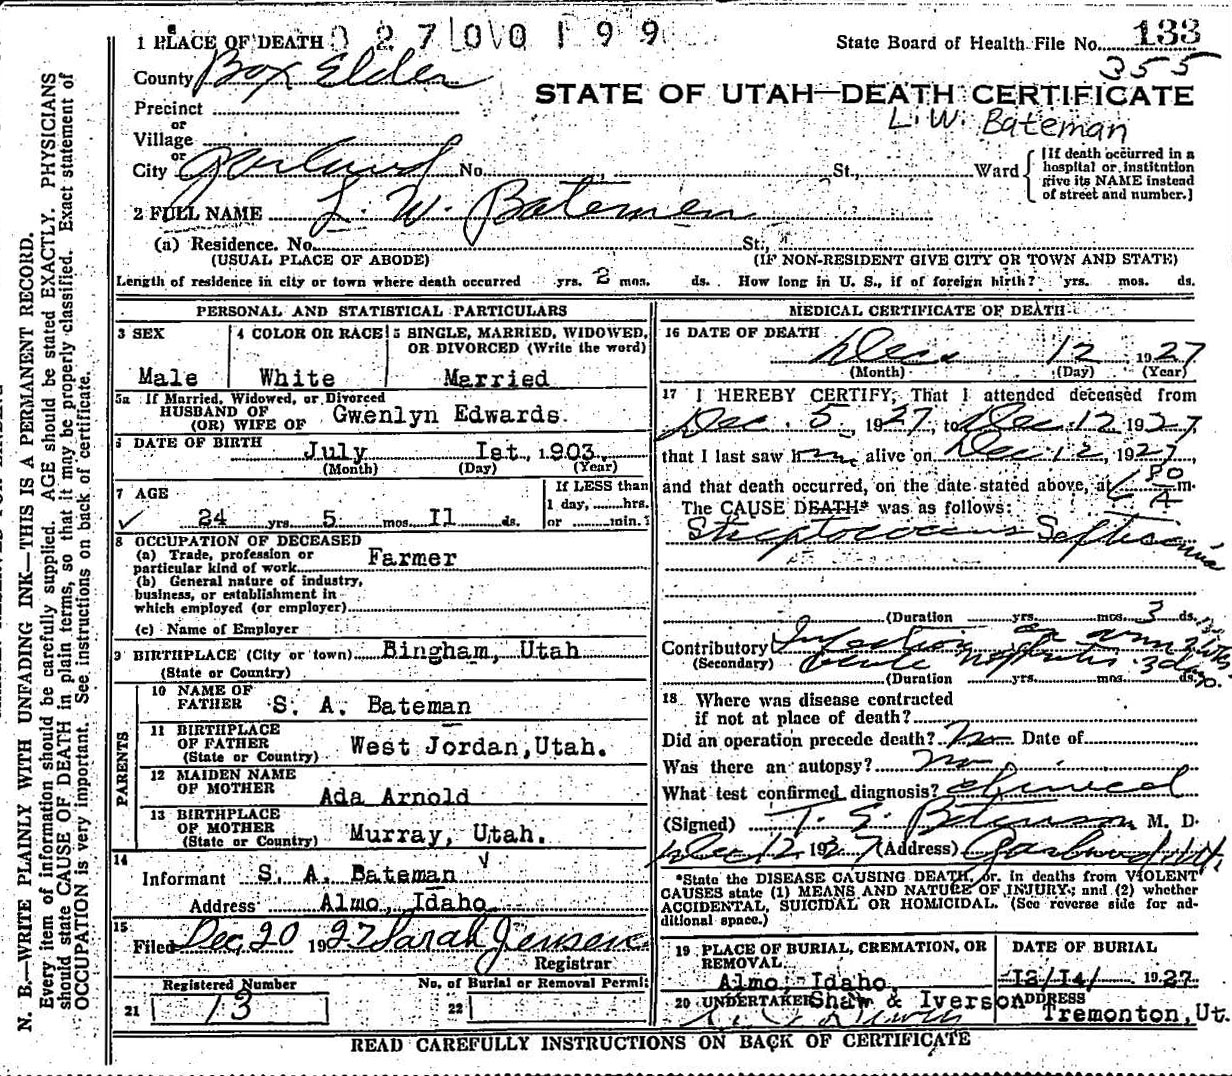 1 PLACE OF DEATH 0 2 7 0 0 1 9 9
State Board of Health File No. 133
County Box Elder 355
Precinct
STATE OF UTAH—DEATH CERTIFICATE
or
L. W. Bateman
Village
or
City Garland No. St., Ward
[If death occurred in a
hospital or institution
give its NAME instead
of street and number.]
2 FULL NAME L. W. Bateman
(a) Residence. No. St.,
(USUAL PLACE OF ABODE) (IF NON-RESIDENT GIVE CITY OR TOWN AND STATE)
Length of residence in city or town where death occurred yrs. 2 mos. ds. How long in U. S., if of foreign birth? yrs. mos. ds.
PERSONAL AND STATISTICAL PARTICULARS
3 SEX 4 COLOR OR RACE 5 SINGLE, MARRIED, WIDOWED,
OR DIVORCED (Write the word)
Male White Married
5a If Married, Widowed, or Divorced
HUSBAND OF
(OR) WIFE OF Gwenlyn Edwards
6 DATE OF BIRTH July Ist., 1903
(Month) (Day) (Year)
7 AGE
If LESS than
1 day, hrs.
24 yrs. 5 mos. II ds. or min.?
8 OCCUPATION OF DECEASED
(a) Trade, profession or
particular kind of work Farmer
(b) General nature of industry,
business, or establishment in
which employed (or employer)
(c) Name of Employer
9 BIRTHPLACE (City or town) Bingham, Utah
(State or Country)
PARENTS
10 NAME OF
FATHER S. A. Bateman
11 BIRTHPLACE
OF FATHER
(State or Country) West Jordan, Utah.
12 MAIDEN NAME
OF MOTHER
Ada Arnold
13 BIRTHPLACE
OF MOTHER
(State or Country) Murray, Utah.
14
Informant S. A. Bateman
Address Almo, Idaho
15
Filed Dec, 20 1927 Sarah Jensen
Registrar
Registered Number No. of Burial or Removal Permit
21 13 22
MEDICAL CERTIFICATE OF DEATH
16 DATE OF DEATH
Dec 12 1927
(Month) (Day) (Year)
17 I HEREBY CERTIFY, That I attended deceased from
Dec. 5, 1927, to Dec. 12 1927,
that I last saw him alive on Dec 12, 1927,
and that death occurred, on the date stated above, at m.
The CAUSE DEATH* was as follows:
Streptococcus Septicemia
(Duration yrs. mos. 3 ds.
Contributory Infection on arm 2 wks
(Secondary) acute nephritis 3 days
(Duration yrs. mos. ds.
18 Where was disease contracted
if not at place of death?
Did an operation precede death? No Date of
Was there an autopsy? no
What test confirmed diagnosis? clinical
(Signed) T. S. M. D.
Dec 12, 1927 (Address) Garland Ut.
*State the DISEASE CAUSING DEATH, or, in deaths from VIOLENT
CAUSES state (1) MEANS AND NATURE OF INJURY; and (2) whether
ACCIDENTAL, SUICIDAL OR HOMICIDAL. (See reverse side for ad-
ditional space.)
19 PLACE OF BURIAL, CREMATION, OR
REMOVAL
DATE OF BURIAL
Almo, Idaho, 12/14/ 1927
20 UNDERTAKER Shaw & Iverson ADDRESS
Tremonton, Ut.
READ CAREFULLY INSTRUCTIONS ON BACK OF CERTIFICATE
N. B.—WRITE PLAINLY WITH UNFADING INK—THIS IS A PERMANENT RECORD.
Every item of information should be carefully supplied. AGE should be stated EXACTLY. PHYSICIANS
should state CAUSE OF DEATH in plain terms, so that it may be properly classified. Exact statement of
OCCUPATION is very important. See instructions on back of certificate.